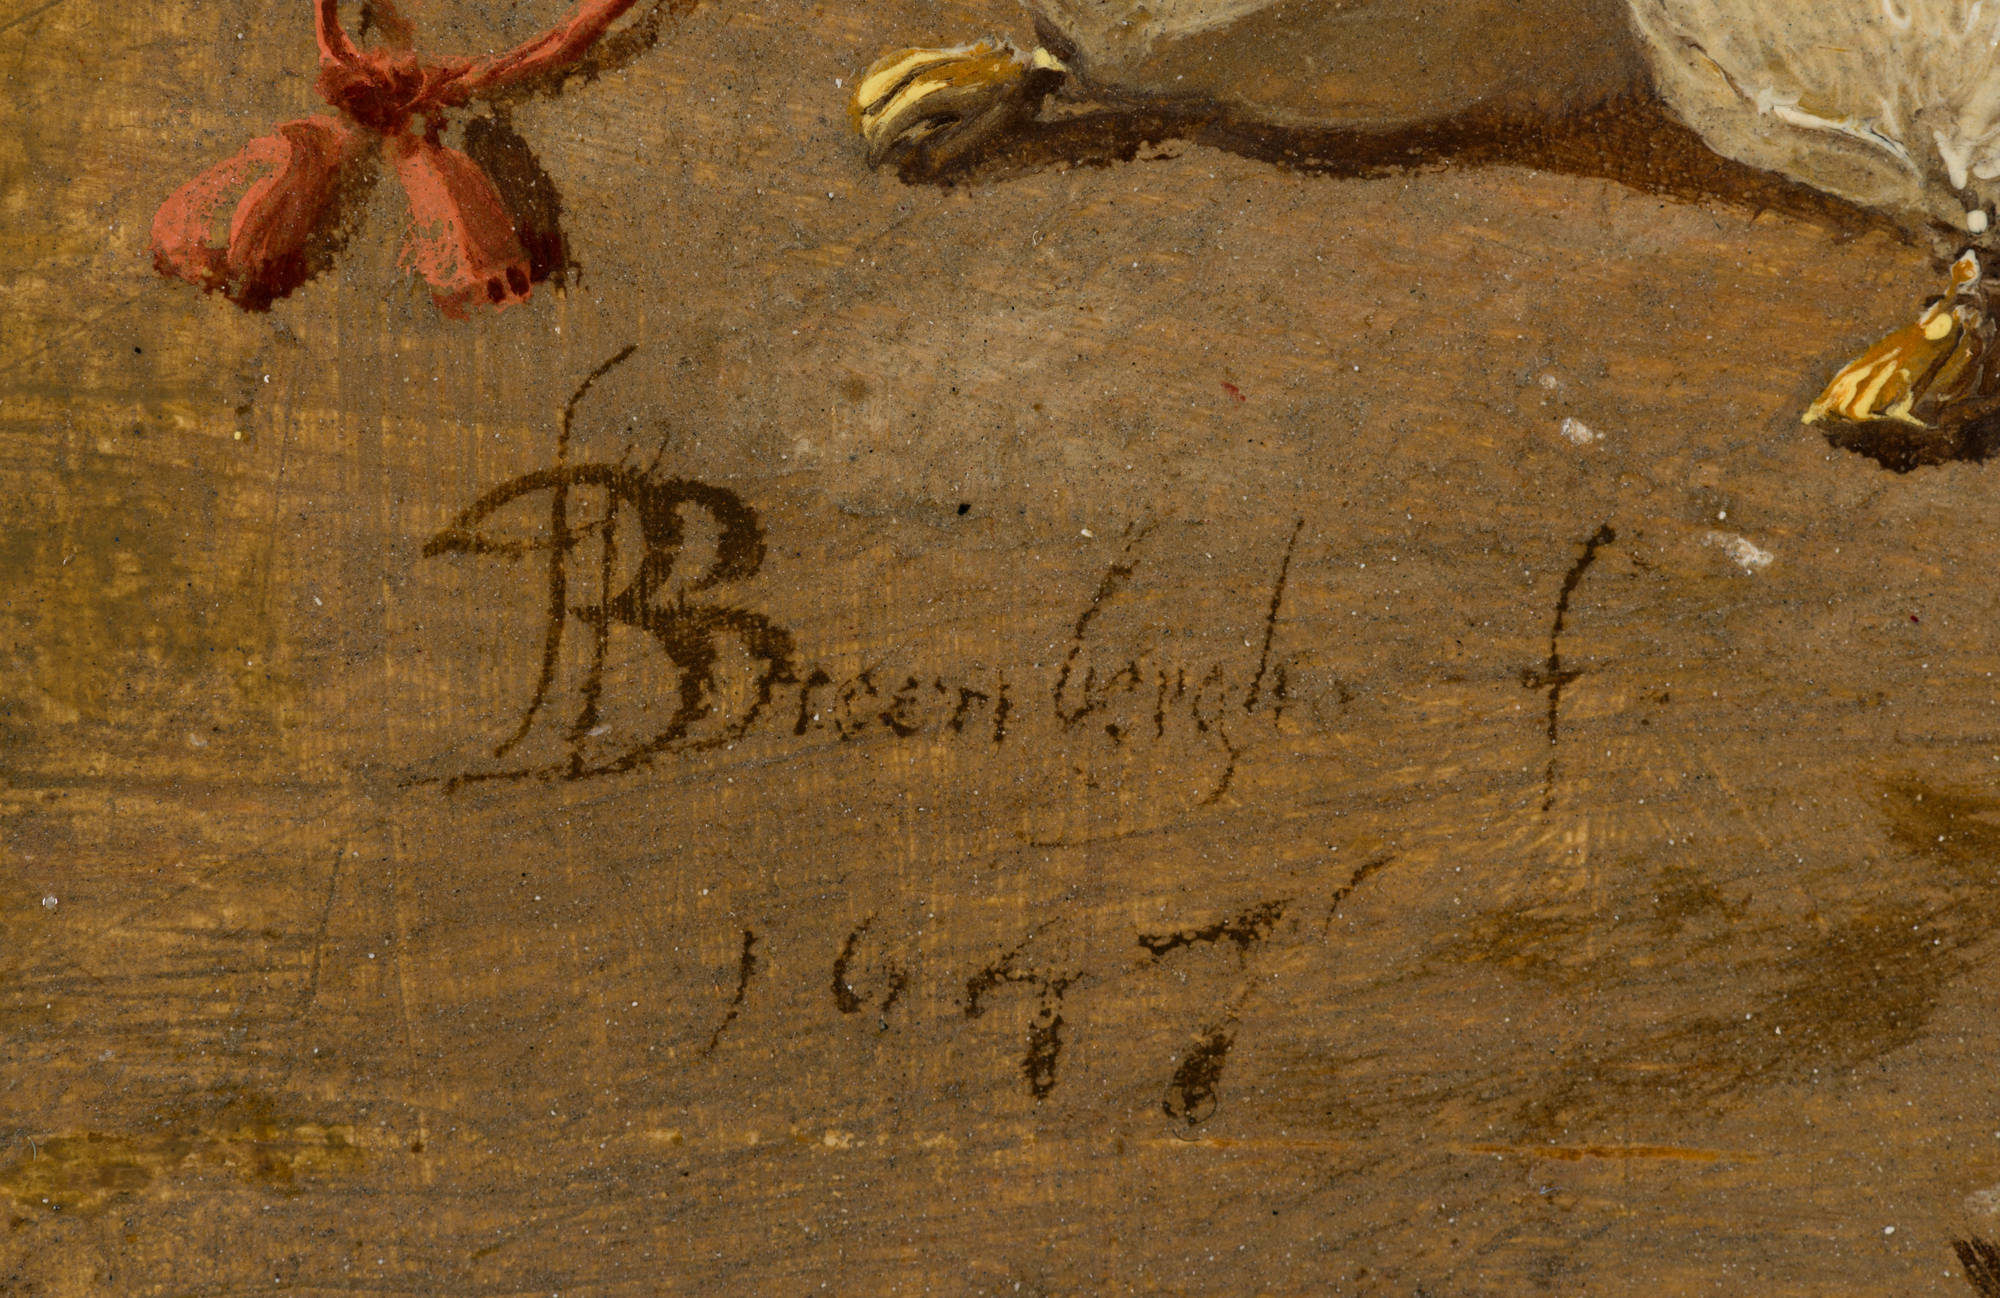 BBreenbergh. f.
1647